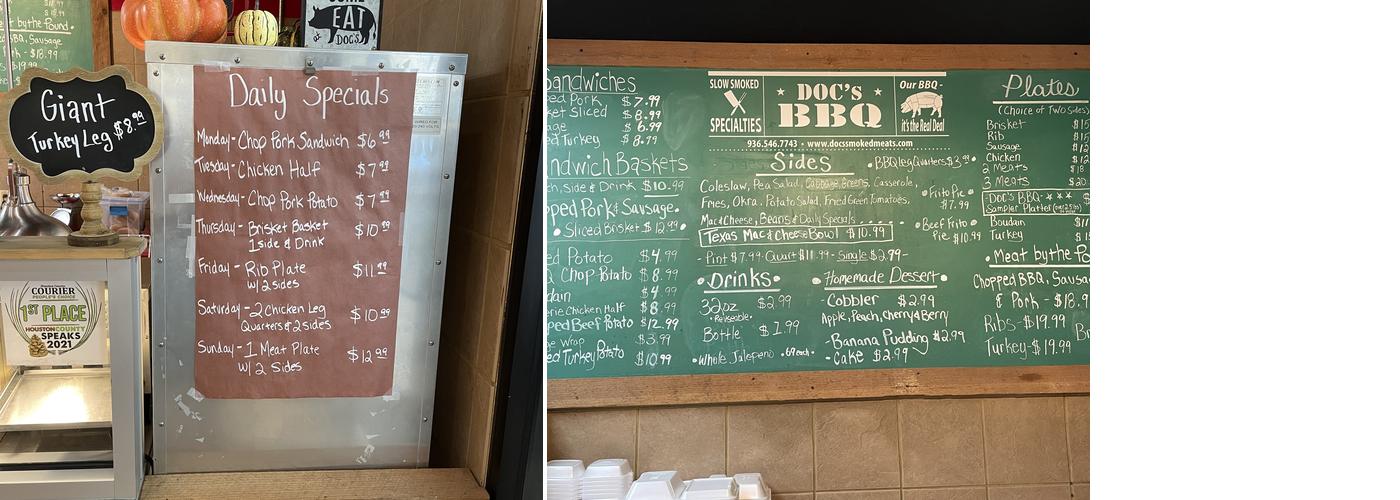 EAT
DOC'S
Meat by the Pound
BBQ, Sausage
Pork - $18.99
Giant
Turkey Leg $8.99
COURIER
PEOPLE'S CHOICE
1ST PLACE
HOUSTON COUNTY
SPEAKS
2021
Daily Specials
Monday - Chop Pork Sandwich $6.99
Tuesday - Chicken Half $7.99
Wednesday - Chop Pork Potato $7.99
Thursday - Brisket Basket $10.99
1 side & Drink
Friday - Rib Plate $11.99
w/ 2 sides
Saturday - 2 Chicken Leg $10.99
Quarters & 2 sides
Sunday - 1 Meat Plate $12.99
w/ 2 Sides
Sandwiches
Pork $7.99
Sliced $8.99
$6.99
Turkey $8.79
Baskets
Side & Drink $10.99
Pork & Sausage
Sliced Brisket $12.99
Potato $4.99
Chop Potato $8.99
$4.99
Chicken Half $8.99
Beef Potato $12.99
Wrap $3.99
Turkey Potato $10.99
SLOW SMOKED
SPECIALTIES
DOC'S
BBQ
Our BBQ -
it's the Real Deal
936.546.7743 • www.docssmokedmeats.com
Sides
BBQ leg Quarters $3.99
Coleslaw, Pea Salad, Cabbage, Greens, Casserole,
Fries, Okra, Potato Salad, Fried Green Tomatoes,
Mac & Cheese, Beans & Daily Specials
Texas Mac & Cheese Bowl $10.99
- Pint $7.99 - Quart $11.99 - Single $2.99 -
Frito Pie
$7.99
Beef Frito
Pie $10.99
Drinks
32oz $2.99
Bottle $1.99
Whole Jalapeno .69 each
Homemade Dessert
- Cobbler $2.99
Apple, Peach, Cherry & Berry
- Banana Pudding $2.99
- Cake $2.99
Plates
(Choice of Two Sides)
Brisket
Rib
Sausage
Chicken
2 Meats
3 Meats
Doc's BBQ
Sampler Platter
Boudain
Turkey
Meat by the
Chopped BBQ,
& Pork -
Ribs - $19.99
Turkey - $19.99